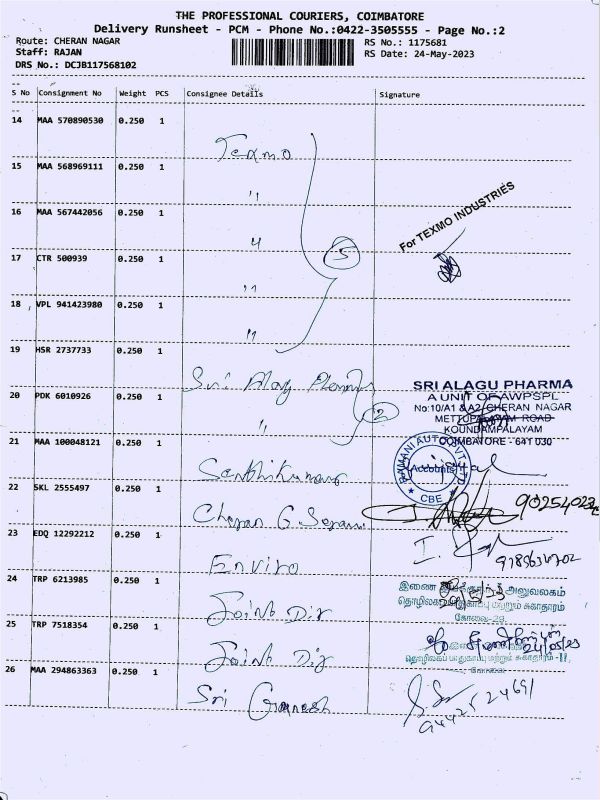 THE PROFESSIONAL COURIERS, COIMBATORE
Delivery Runsheet - PCM - Phone No.:0422-3505555 - Page No.:2
Route: CHERAN NAGAR
RS No.: 1175681
Staff: RAJAN
RS Date: 24-May-2023
DRS No.: DCJB117568102
S No Consignment No Weight PCS Consignee Details Signature
14 MAA 570890530 0.250 1 Texmo
15 MAA 568969111 0.250 1 "
16 MAA 567442056 0.250 1 "
For TEXMO INDUSTRIES
17 CTR 500939 0.250 1 "
5
18 VPL 941423980 0.250 1 "
19 HSR 2737733 0.250 1 Sri Alag
SRI ALAGU PHARMA
A UNIT OF AWPSPL
20 PDK 6010926 0.250 1 "
2
No:10/A1 & A2, CHERAN NAGAR
METTUPALAYAM ROAD
KOUNDAMPALAYAM
COIMBATORE - 641 030
21 MAA 100048121 0.250 1 Senthilkumar
Accounts
CBE
22 SKL 2555497 0.250 1 Cheran G
23 EDQ 12292212 0.250 1 Enviro
24 TRP 6213985 0.250 1 Joint Dir
இணை இயக்குநர் அலுவலகம்
தொழிலகப் பாதுகாப்பு மற்றும் சுகாதாரம்
கோவை-
25 TRP 7518354 0.250 1 Joint Dir
24/05/23
தொழிலகப் பாதுகாப்பு மற்றும் சுகாதாரம்
கோவை
26 MAA 294863363 0.250 1 Sri Ganesh
9442524691